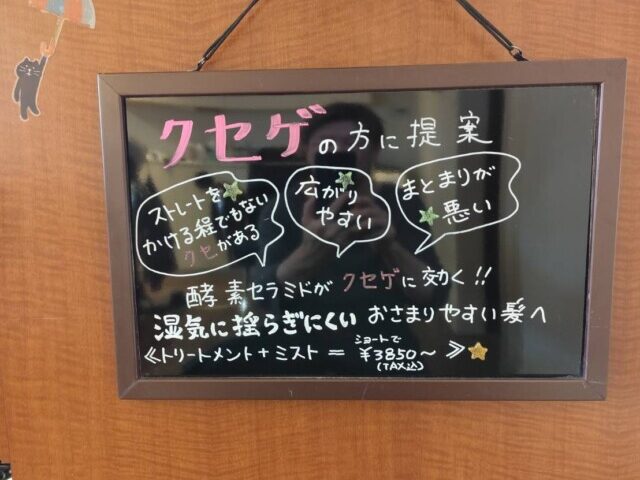 クセゲの方に提案
ストレートを
かける程でもない
クセがある
広がり
やすい
まとまりが
悪い
酵素セラミドがクセゲに効く!!
湿気に揺らぎにくい おさまりやすい髪へ
ショートで
≪トリートメント+ミスト=¥3850〜≫
(TAX込)